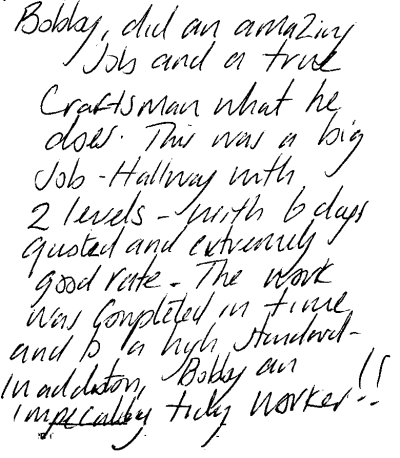 Bobby, did an amazing
Job and a true
Craftsman what he
does. This was a big
Job - Hallway with
2 levels - with 6 days
quoted and extremely
good rate. The work
was completed in time
and to a high standard -
In addition, Bobby an
impeccably tidy worker!!